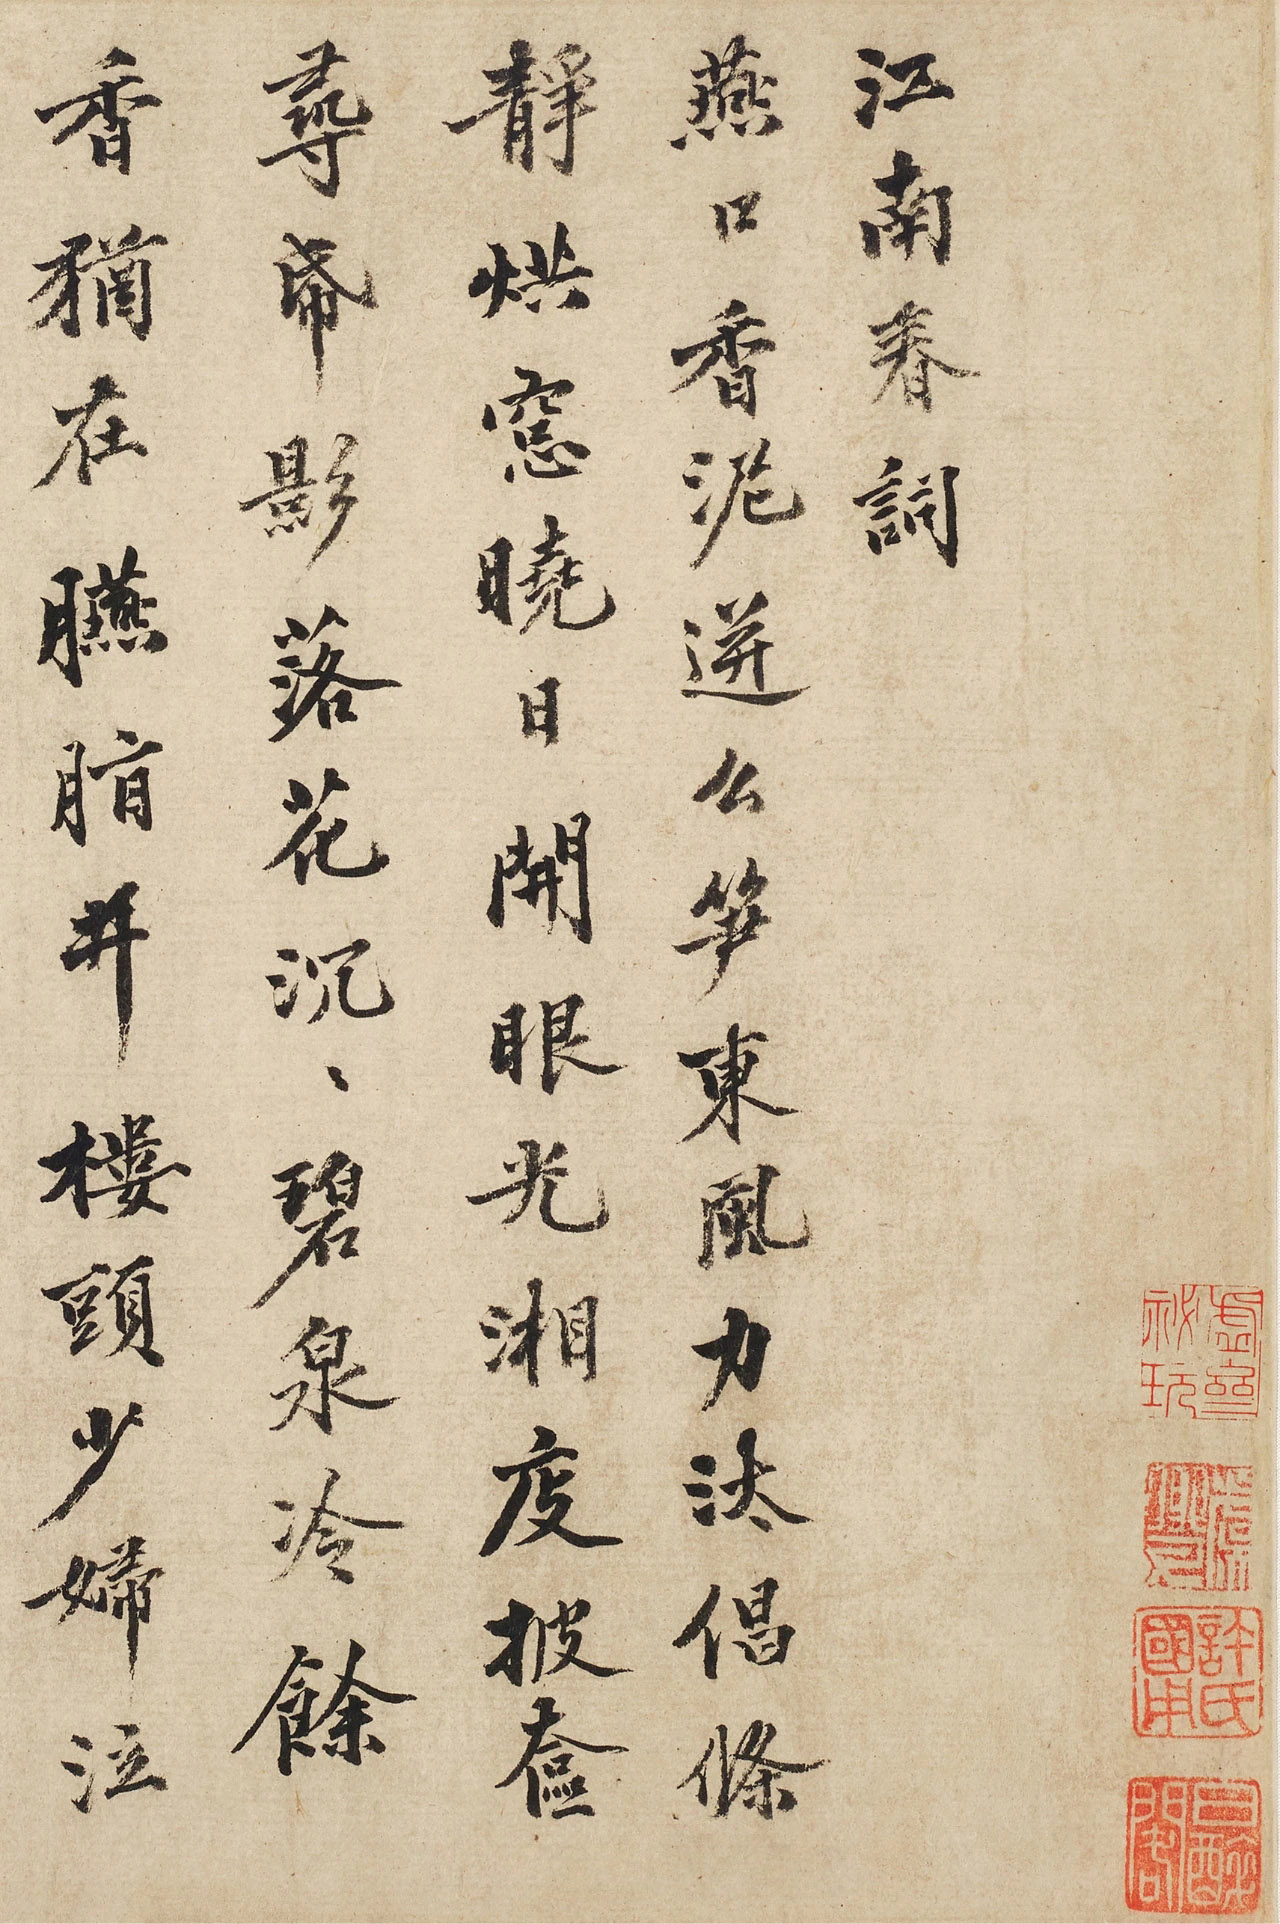 江南春詞
燕口香泥迸么笋東風力汰倡條
靜烘窓曉日開眼光湘度披奩
尋帟影落花沉、碧泉冷餘
香猶在臙脂井樓頭少婦泣
虛齋秘玩
許氏國用